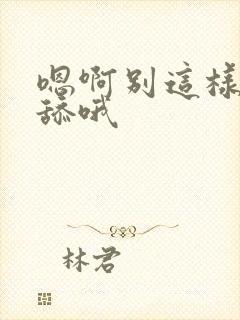 嗯啊别這樣
舔哦
林君